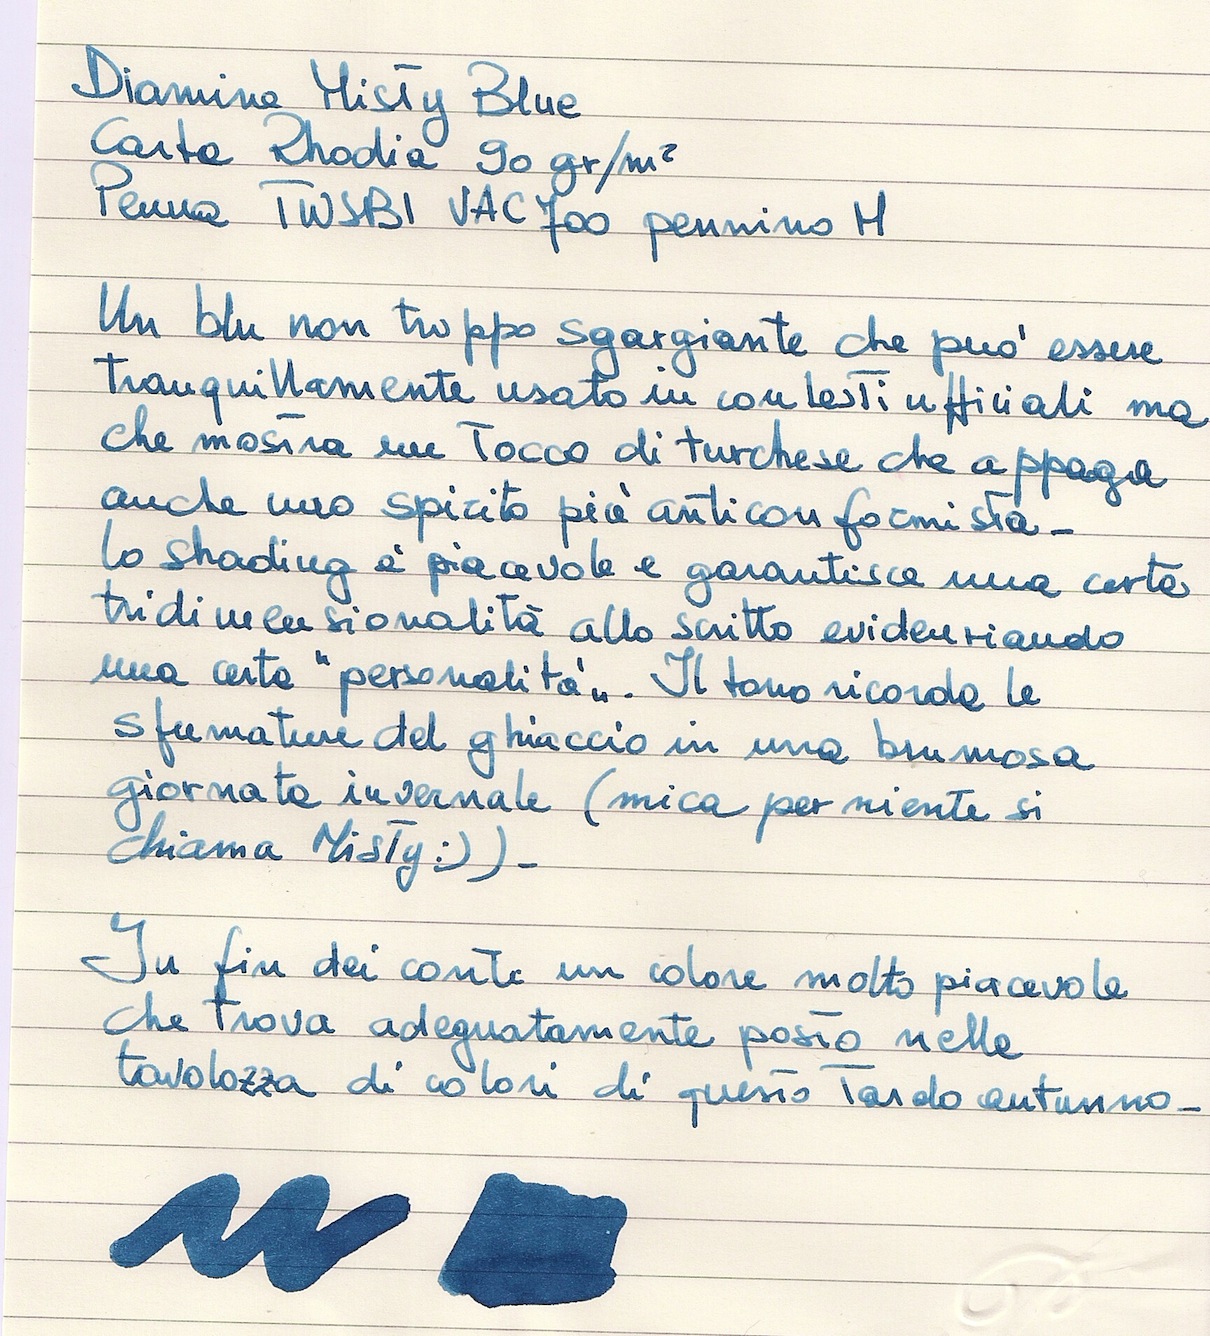 Diamine Misty Blue
Carta Rhodia 90 gr/m²
Penna TWSBI VAC 700 pennino M
Un blu non troppo sgargiante che può essere
tranquillamente usato in contesti ufficiali ma
che mostra un tocco di turchese che appaga
anche uno spirito più anticonformista_
Lo shading è piacevole e garantisce una certa
tridimensionalità allo scritto evidenziando
una certa "personalità". Il tono ricorda le
sfumature del ghiaccio in una brumosa
giornata invernale (mica per niente si
chiama Misty :) )_
In fin dei conti un colore molto piacevole
che trova adeguatamente posto nella
tavolozza di colori di questo tardo autunno_